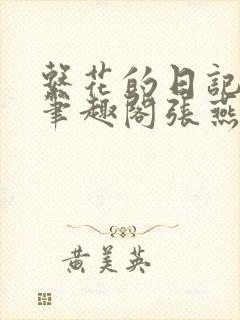 繁花的日記
筆趣閣張燕
黃美英